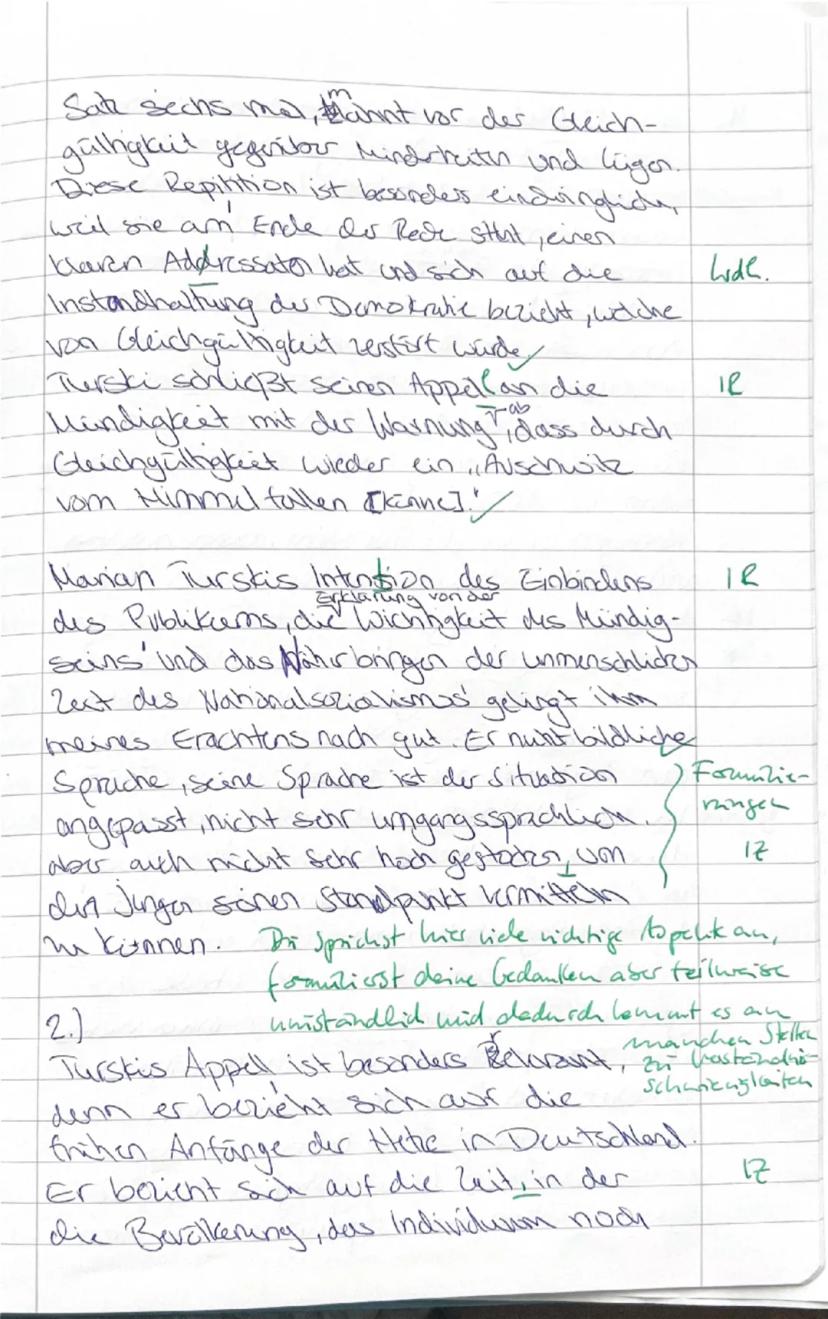 Satz sechs mal, mahnt vor der Gleich-
gültigkeit gegenüber Minderheiten und Lügen.
Diese Repitition ist besonders eindringlich,
weil sie am Ende der Rede steht, einen
klaren Addressaten hat und sich auf die
Wdh.
Instandhaltung der Demokratie bezieht, welche
von Gleichgültigkeit zerstört würde. ✓
Turski schließt seinen Appell an die
1R
ab
Mündigkeit mit der Warnung, dass durch
Gleichgültigkeit wieder ein „Auschwitz
vom Himmel fallen [könne]." ✓
Marian Turskis Intention des Einbindens
1R
Erklärung von der
des Publikums, die Wichtigkeit des Mündig-
seins und das Näherbringen der unmenschlichen
Zeit des Nationalsozialismus gelingt ihm
meines Erachtens nach gut. Er nutzt bildliche
Sprache, seine Sprache ist der Situation
Formulie-
angepasst, nicht sehr umgangssprachlich.
rungen
aber auch nicht sehr hoch gestochen, um
1Z
den Jungen seinen Standpunkt vermitteln
zu können.
Du sprichst hier viele wichtige Aspekte an,
formulierst deine Gedanken aber teilweise
umständlich und dadurch kommt es an
manchen Stellen
zu Verständnis-
schwierigkeiten
2.)
Turskis Appell, ist besonders relevant,
denn er bezieht sich auf die
frühen Anfänge der Hetze in Deutschland.
Er bezieht sich auf die Zeit, in der
1Z
die Bevölkerung, das Individuum noch